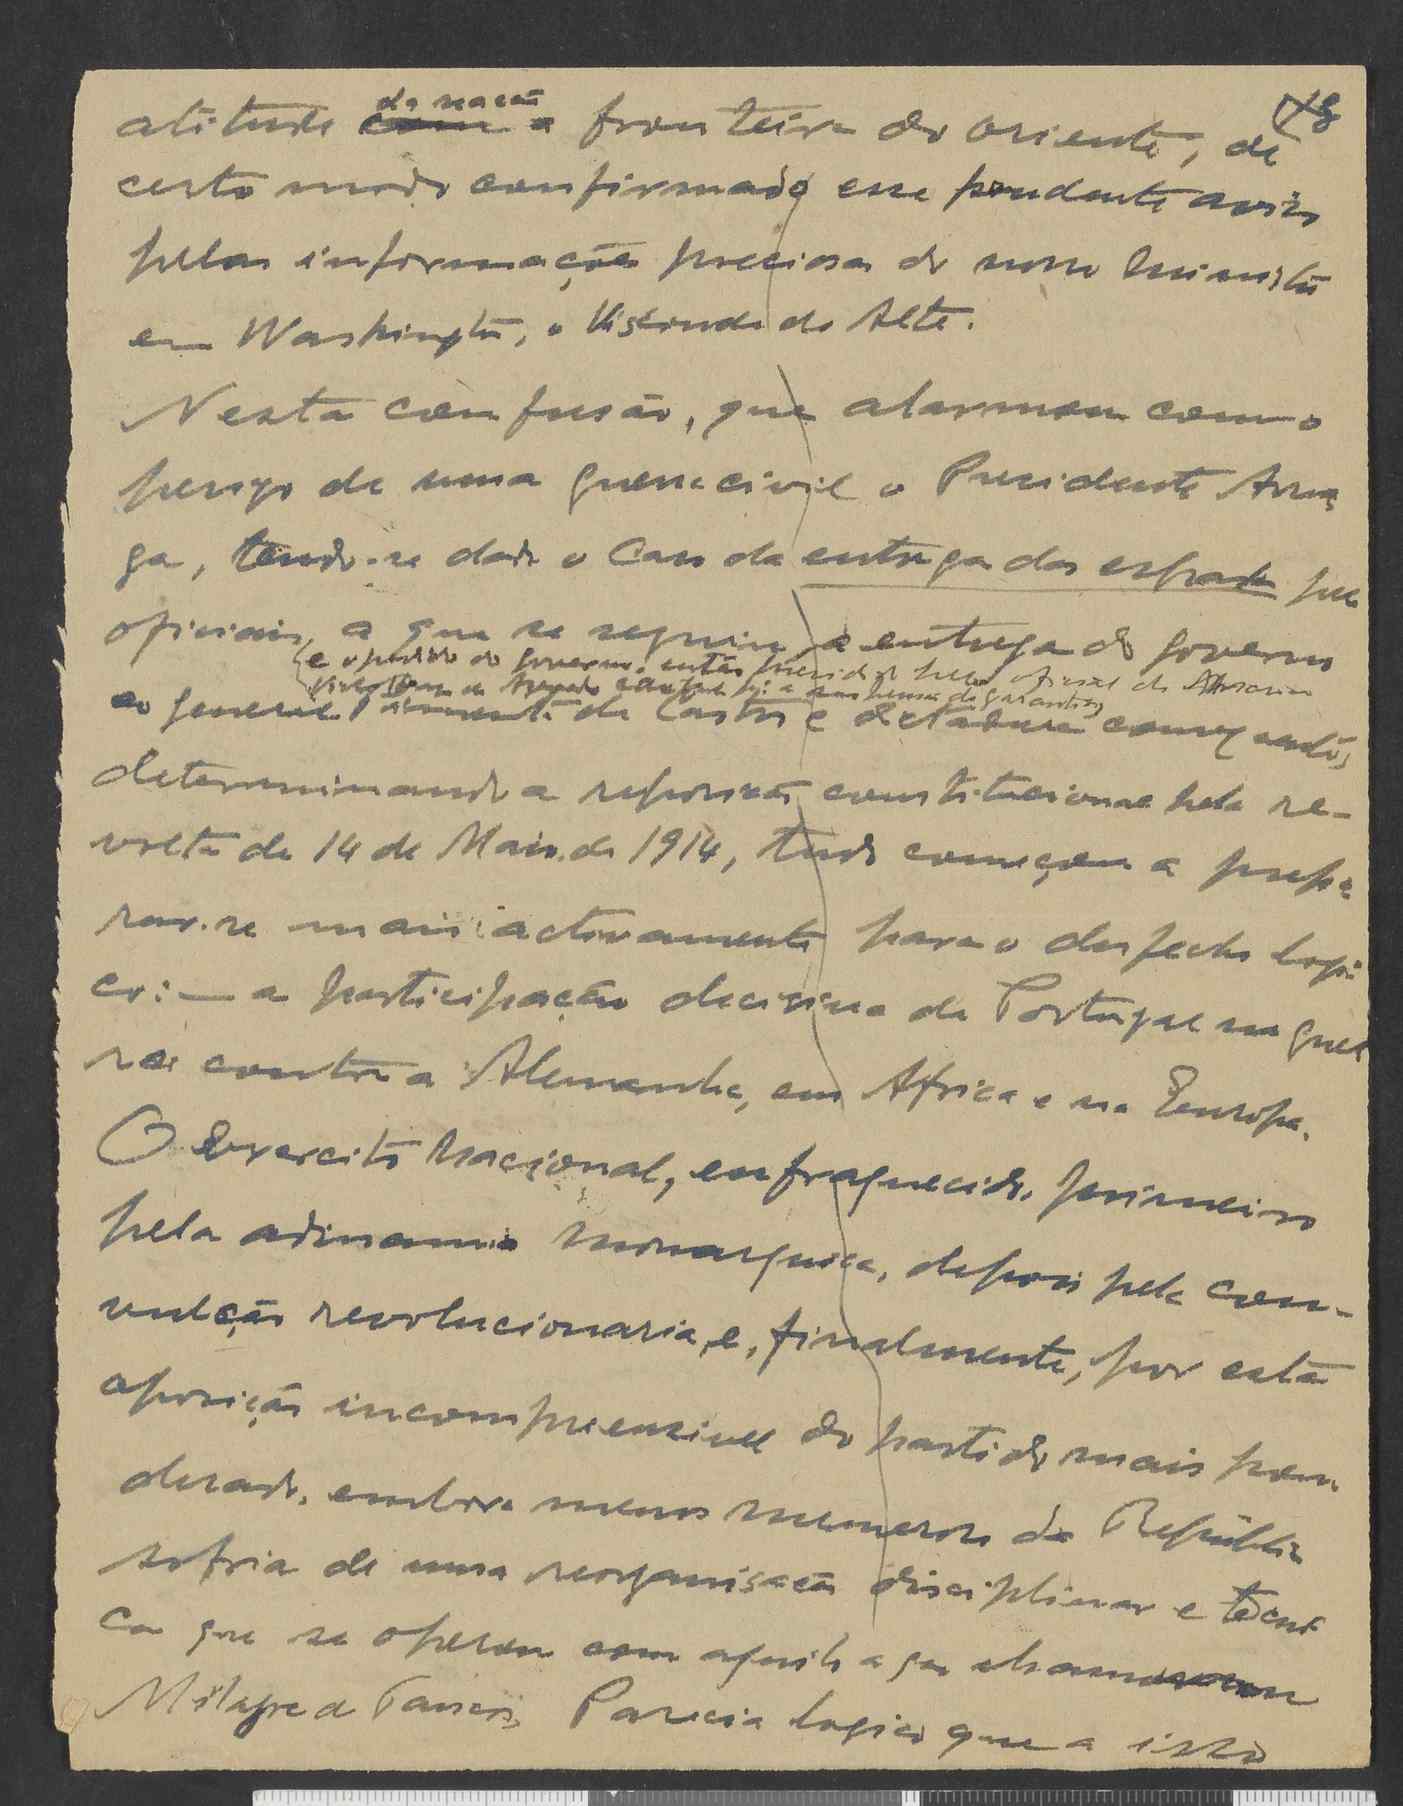 atitude da nação a fronteira do oriente, de
certo modo confirmado esse prudente aviso
pelas informações preciosas do nosso Ministro
em Washington, o Visconde de Alte.
Nesta confusão, que alarmou com o
perigo de uma guerra civil o Presidente Arria
ga, tendo-se dado o caso da entrega das espadas pelos
oficiais, a que se seguiu a entrega do governo
e o pedido do governo, então presidido pelo
ao general Pimenta de Castro e dictadura consequente,
determinando a reposição constitucional pela re-
volta de 14 de Maio de 1914, tudo começou a prepa
rar-se mais activamente para o desfecho logi
co: — a participação decisiva de Portugal na guer
ra contra a Alemanha, em Africa e na Europa.
O Exercito Nacional, enfraquecido, primeiro
pela adinamia monarquica, depois pela con-
vulção revolucionaria, e, finalmente, por esta
oposição incompreensivel do partido mais pon
derado, embora menos numeroso da Républica
sofria de uma reorganisação disciplinar e tecni
ca que se operou com aquilo a que chamaram
Milagre de Tancos. Parecia logico que a isso